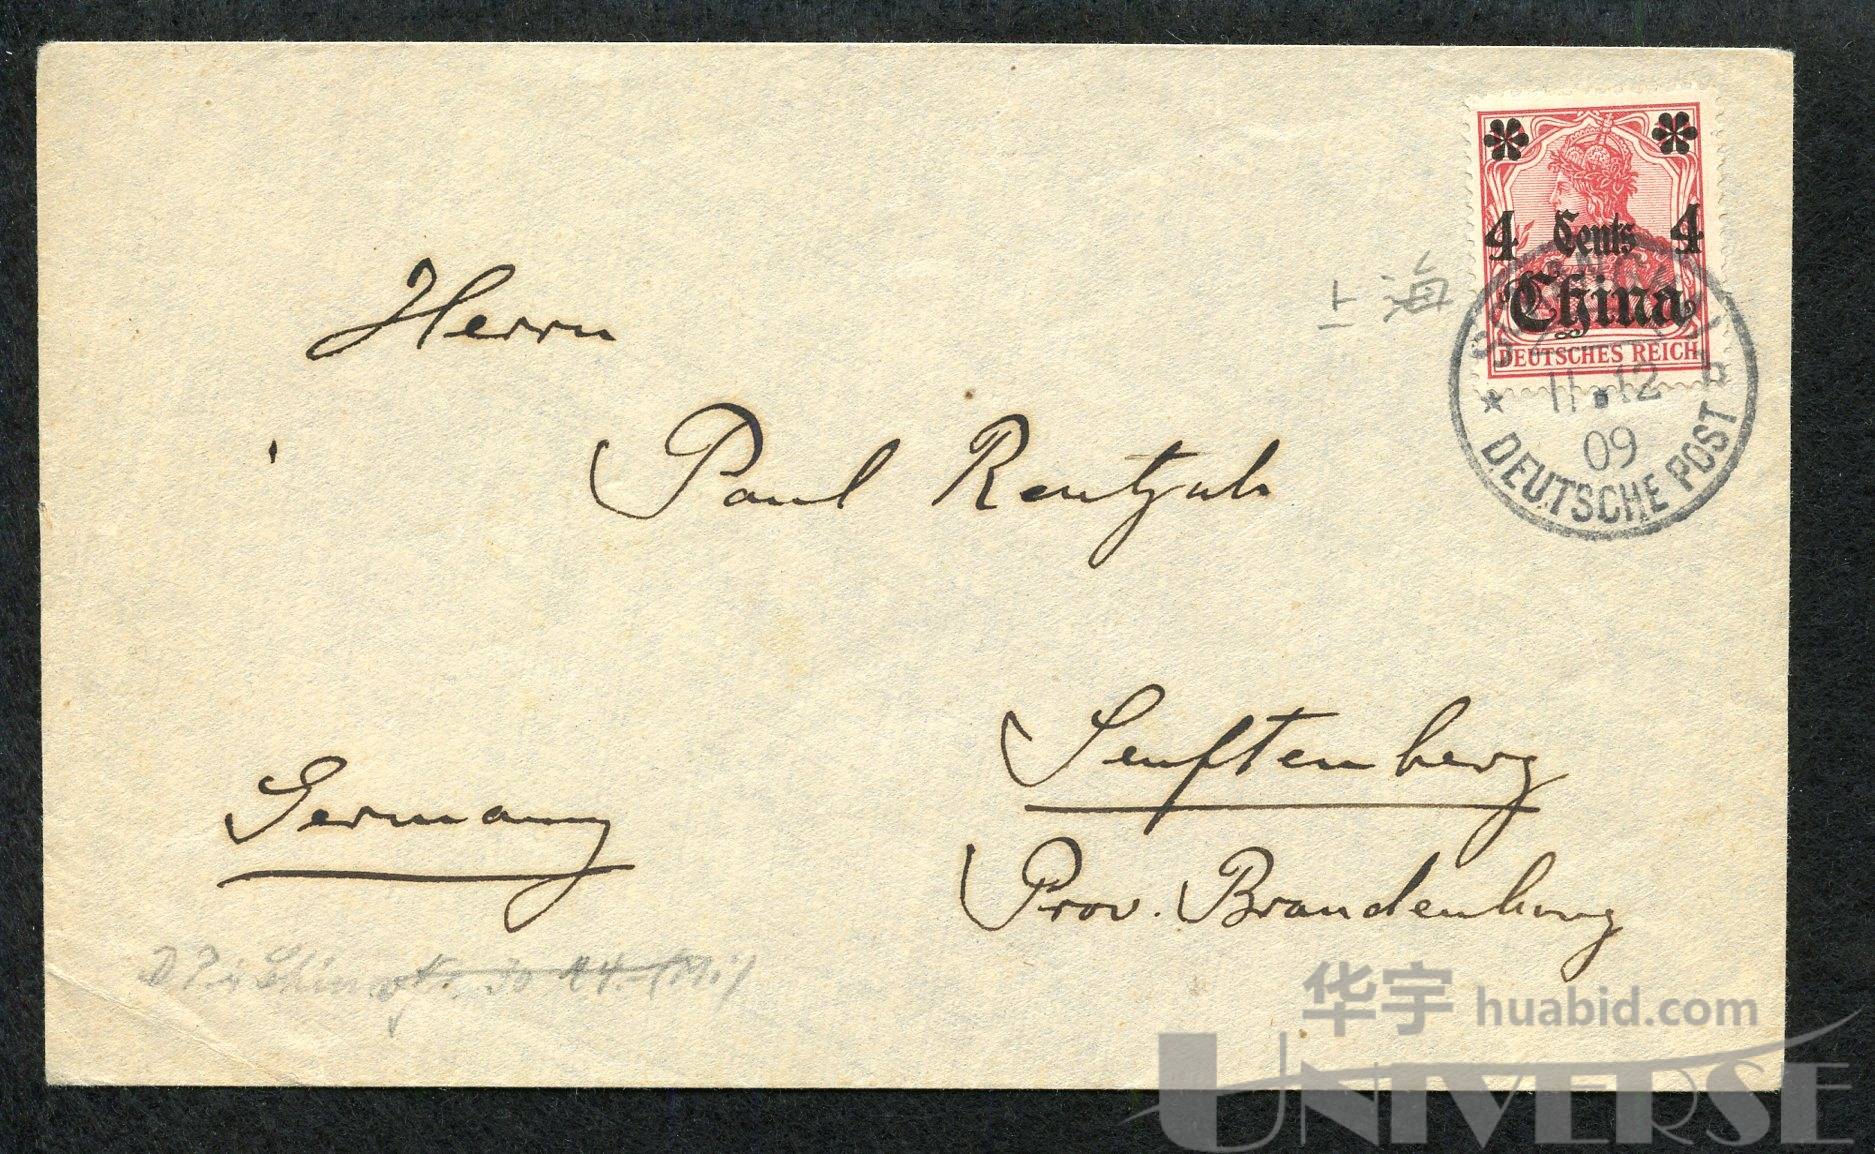 4 Cents 4
China
DEUTSCHES REICH
上海
SHANGHAI
11 12
09
* DEUTSCHE POST
Herrn
Paul Rentzsch
Senftenberg
Germany
Prov. Brandenburg
华宇 huabid.com
UNIVERSE